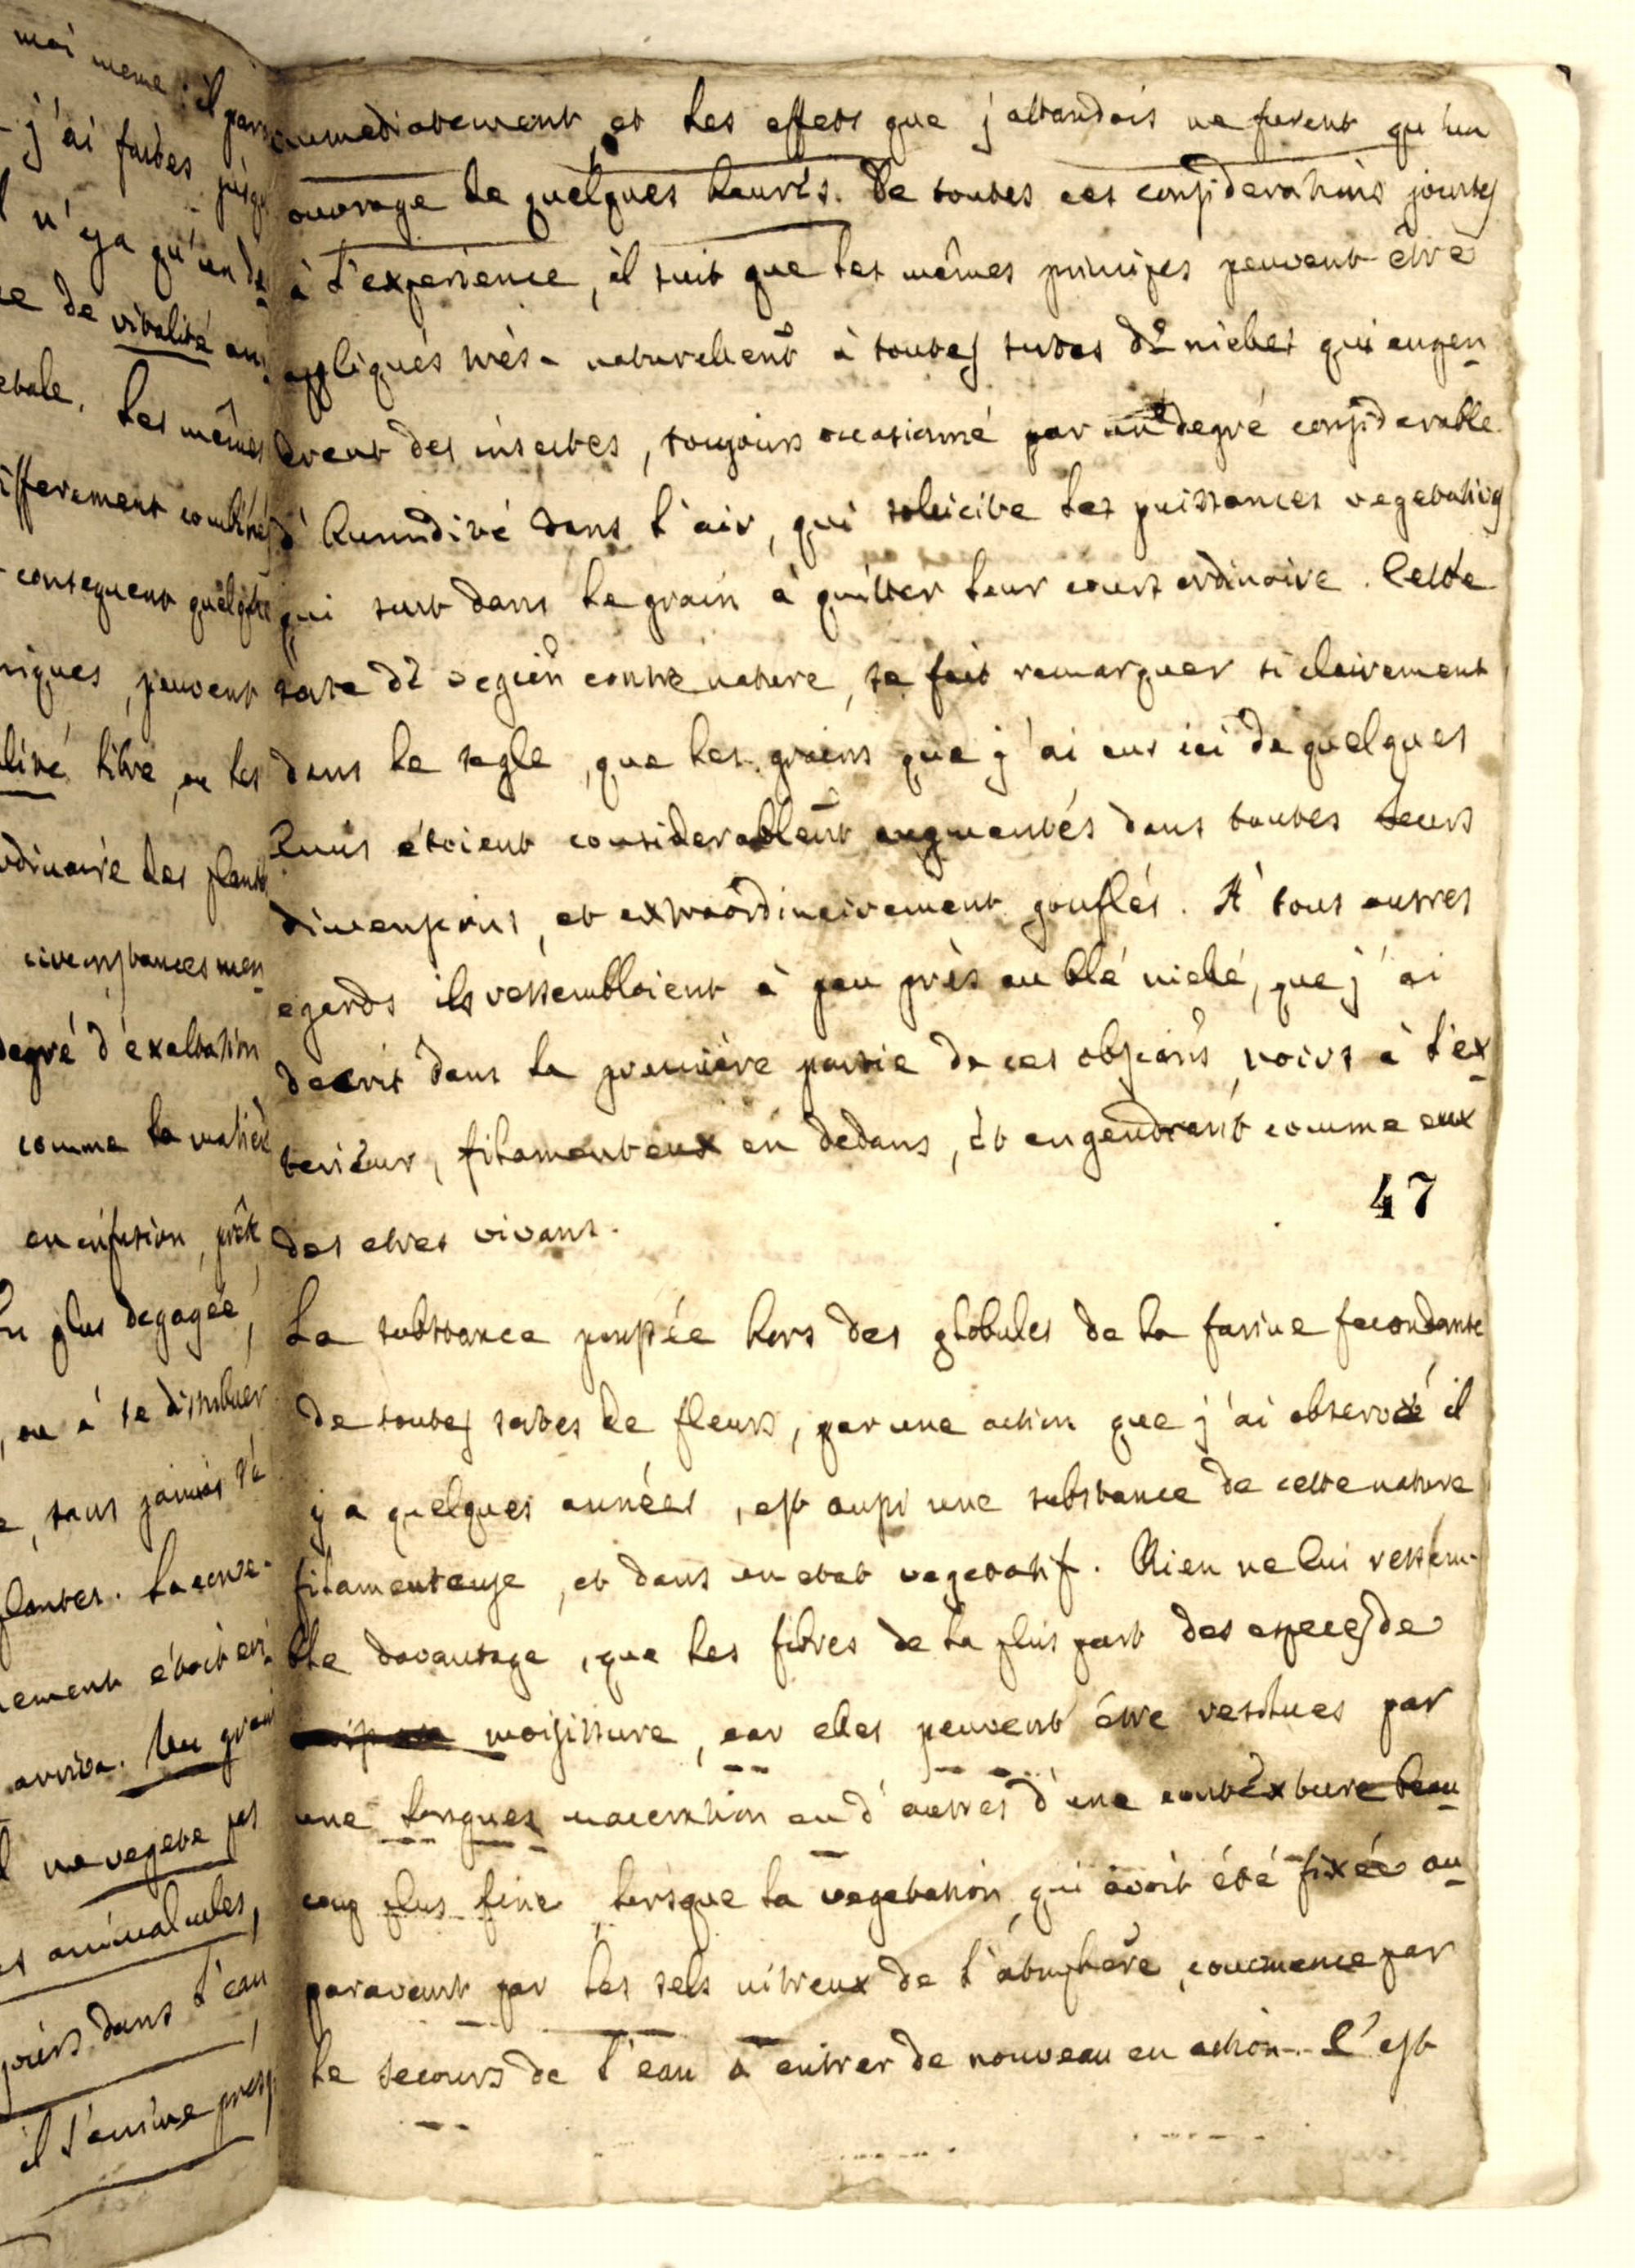 moi meme : il par
j'ai faites jusqu
n'y a qu'un de
de vitalité
Les mêmes
ifferement combiné
consequent quelque
niques, peuvent
libre, ou les
ordinaire des plant
circonstances
degré d'exaltation
comme la matiè
en infusion, prête
plus degagée,
, ou à se distribuer
, sans jamais s'
plantes. La
ement étoit
arriva. Un grain
ne vegete pas
es animalcules,
dans l'eau
il s'ensuive presq
immediatement, et les effets que j'attandois ne furent qu'un
ouvrage de quelques heures. De toutes ces considerations jointes
à l'experience, il suit que les mêmes principes peuvent être
appliqués très-naturellem̃t à toutes sortes de nieles qui engen
drent des insectes, toujours occasionné par un degré considerable
d'humidité dans l'air, qui sollicite les puissances vegetatives
qui sont dans le grain à quitter leur cours ordinaire. Cette
sorte de contre nature, se fait remarquer si clairement
dans le segle, que les grains que j'ai eus ici de quelques
uns étoient considerablem̃t augmentés dans toutes leurs
dimensions, et extraordinairement gonflés. A tous autres
egards ils ressembloient à peu près au blé nielé, que j'ai
decrit dans la première partie de ces noirs à l'ex
terieur, filamenteux en dedans, et engendrant comme eux
47
des etres vivans.
La substance poussée hors des globules de la farine fecondante
de toutes sortes de fleurs, par une action que j'ai observé il
y a quelques années, est aussi une substance de cette nature
filamenteuse, et dans un etat vegetatif. Rien ne lui ressem-
ble davantage, que les fibres de la plus part des especes de
moisissure, car elles peuvent être resolues par
une longues maceration en d'autres d'une contexture beau
coup plus fine, lorsque la vegetation, qui avoit été fixée au
paravant par les sels nitreux de l'atmosphère, commence par
le secours de l'eau à entrer de nouveau en action. C'est